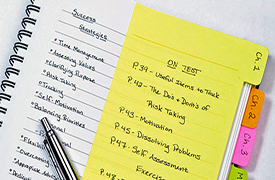 Success
Strategies
* Time Management
* Assessing Values
* Clarifying Purpose
* Risk Taking
* Tracking
* Self-Motivation
* Balancing Priorities
* Overcoming
ON TEST
P.39 - Useful Items to Track
P.43 - The Do's & Dont's of
Risk Taking
P.43 - Motivation
P.45 - Dissolving Problems
P.47 - Self Assessment
Exercise
Ch. 1
Ch. 2
Ch 3